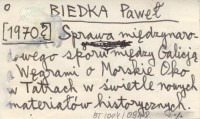 BIEDKA Paweł
[1970?] Sprawa międzynaro-
dowego sporu między Galicją
a Węgrami o Morskie Oko
w Tatrach w świetle nowych
materiałów historycznych.
BT 1004/